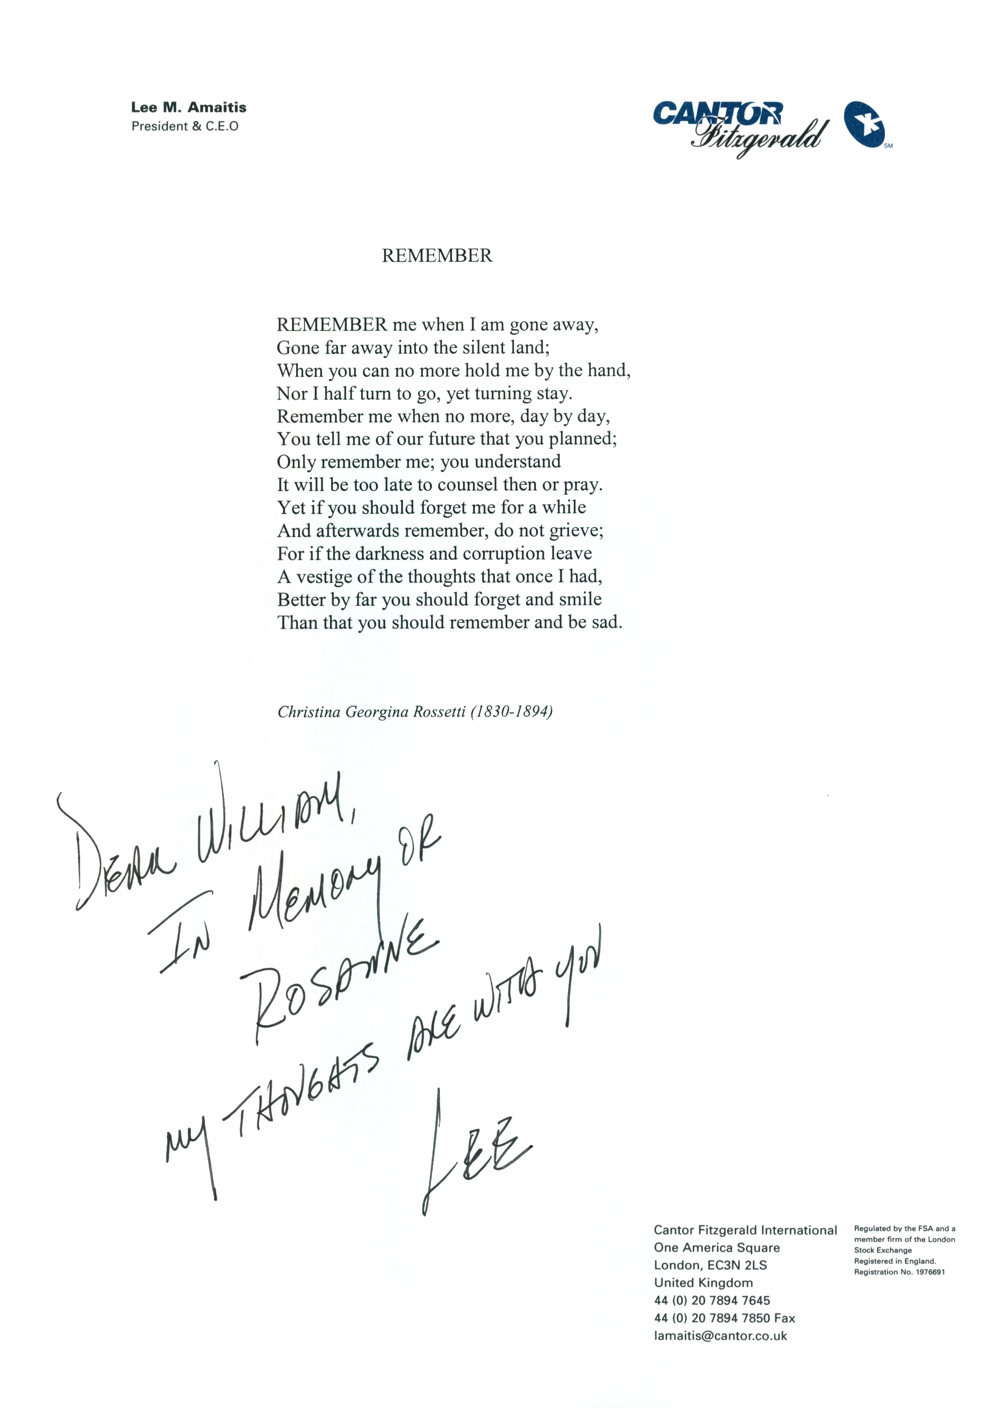 Lee M. Amaitis
President & C.E.O
CANTOR
Fitzgerald
SM
REMEMBER
REMEMBER me when I am gone away,
Gone far away into the silent land;
When you can no more hold me by the hand,
Nor I half turn to go, yet turning stay.
Remember me when no more, day by day,
You tell me of our future that you planned;
Only remember me; you understand
It will be too late to counsel then or pray.
Yet if you should forget me for a while
And afterwards remember, do not grieve;
For if the darkness and corruption leave
A vestige of the thoughts that once I had,
Better by far you should forget and smile
Than that you should remember and be sad.
Christina Georgina Rossetti (1830-1894)
DEAR WILLIAM,
IN MEMORY OF
ROSANNE
MY THOUGHTS ARE WITH YOU
LEE
Cantor Fitzgerald International
One America Square
London, EC3N 2LS
United Kingdom
44 (0) 20 7894 7645
44 (0) 20 7894 7850 Fax
lamaitis@cantor.co.uk
Regulated by the FSA and a
member firm of the London
Stock Exchange
Registered in England.
Registration No. 1976691